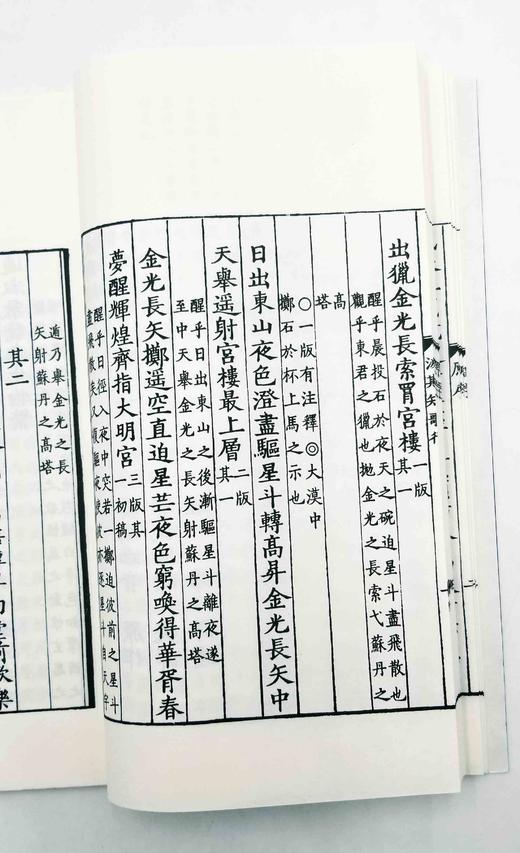 出獵金光長索罥宮樓一版其一
醒乎晨投石於夜天之碗迫星斗盡飛散也
觀乎東君之獵也拋金光之長索弋蘇丹之
高
塔
○一版有注釋◎大漠中
擲石於杯上馬之示也
日出東山夜色澄盡驅星斗轉高昇金光長矢中
天舉遥射宮樓最上層二版其一
醒乎日出東山之後漸驅星斗離夜遂
至中天舉金光之長矢射蘇丹之高塔
金光長矢擲遥空直迫星芒夜色窮喚得華胥春
夢醒輝煌齊指大明宮三版其一初稿
醒乎日徑入夜中空若一擲迫彼前之星斗
盡飛散矣又驅夜亦逐星斗自天宇
遁乃舉金光之長
矢射蘇丹之高塔
其二